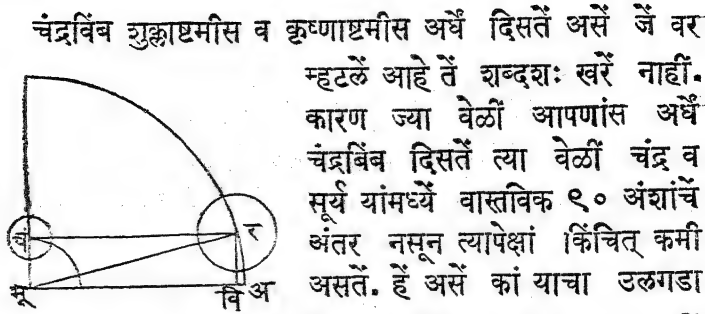 चंद्रविंब शुक्लाष्टमीस व कृष्णाष्टमीस अर्धें दिसतें असें जें वर
म्हटलें आहे तें शब्दशः खरें नाहीं.
कारण ज्या वेळीं आपणांस अर्धें
चंद्रबिंब दिसतें त्या वेळीं चंद्र व
सूर्य यांमध्यें वास्तविक ९० अंशांचें
अंतर नसून त्यापेक्षां किंचित् कमी
असतें. हें असें कां याचा उलगडा
चं
र
भू
वि अ